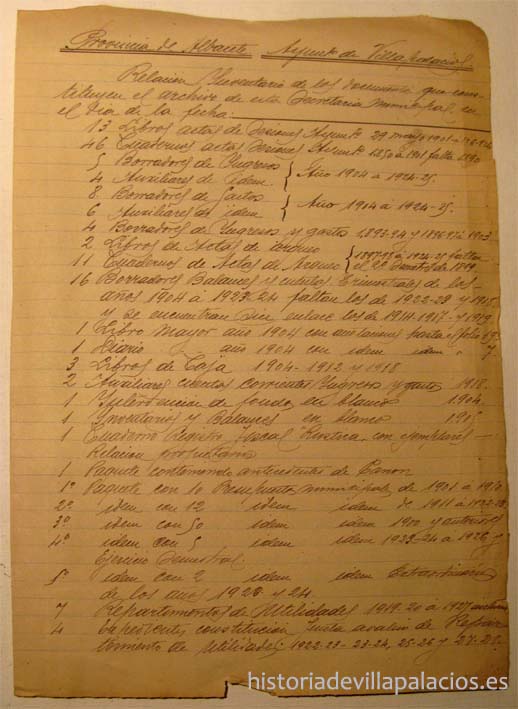 Provincia de Albacete Ayunt.º de Villapalacios
Relacion Inventario de los documentos que cons-
tituyen el archivo de esta Secretaria municipal, en
el dia de la fecha.
13 Libros actas de Sesiones Ayunt.º 29 mayo 1901 á
46 Cuadernos actas Sesiones Ayunt.º 1850 á 1901 falta 1890
5 Borradores de Yngresos
4 Auxiliares de idem } Año 1904 á 1924-25.
8 Borradores de Gastos
6 Auxiliares de idem } Año 1904 á 1924-25.
4 Borradores de Yngresos y gastos 1893-24 y 1896-97 á 1903
2 Libros de Actas de arqueo
11 Cuadernos de Actas de Arqueo
16 Borradores Balances y cuentas trimestrales de los
años 1904 á 1923-24 faltan los de 1922-23 y 1915
y se encuentran sin enlace los de 1914-1917- y 1919
1 Libro Mayor año 1904 con anotaciones hasta folio
1 Diario año 1904 con idem idem
3 Libros de Caja 1904-1912 y 1918
2 Auxiliares cuentas corrientes Yngresos y gastos 1918.
1 Yntervencion de fondos en blanco 1904.
1 Ynventarios y Balances en blanco
1 Cuaderno Registro fiscal
Relacion propietarios
1 Paquete conteniendo antecedentes de
1º Paquete con 10 Presupuestos municipales de 1901 á 1910
2º idem con 12 idem idem de 1911 á 1922-23.
3º idem con 50 idem idem 1900 y anteriores
4º idem con 5 idem idem 1923-24 á 1926 y
Ejercicio Semestral.
5º idem con 2 idem idem Extraordinarios
de los años 1923 y 24.
7 Repartimientos de Utilidades 1919-20 á 1927
4 Expedientes constitucion Junta de Repar-
timiento de Utilidades 1922-23-23-24, 25-26 y 27-28.
historiadevillapalacios.es